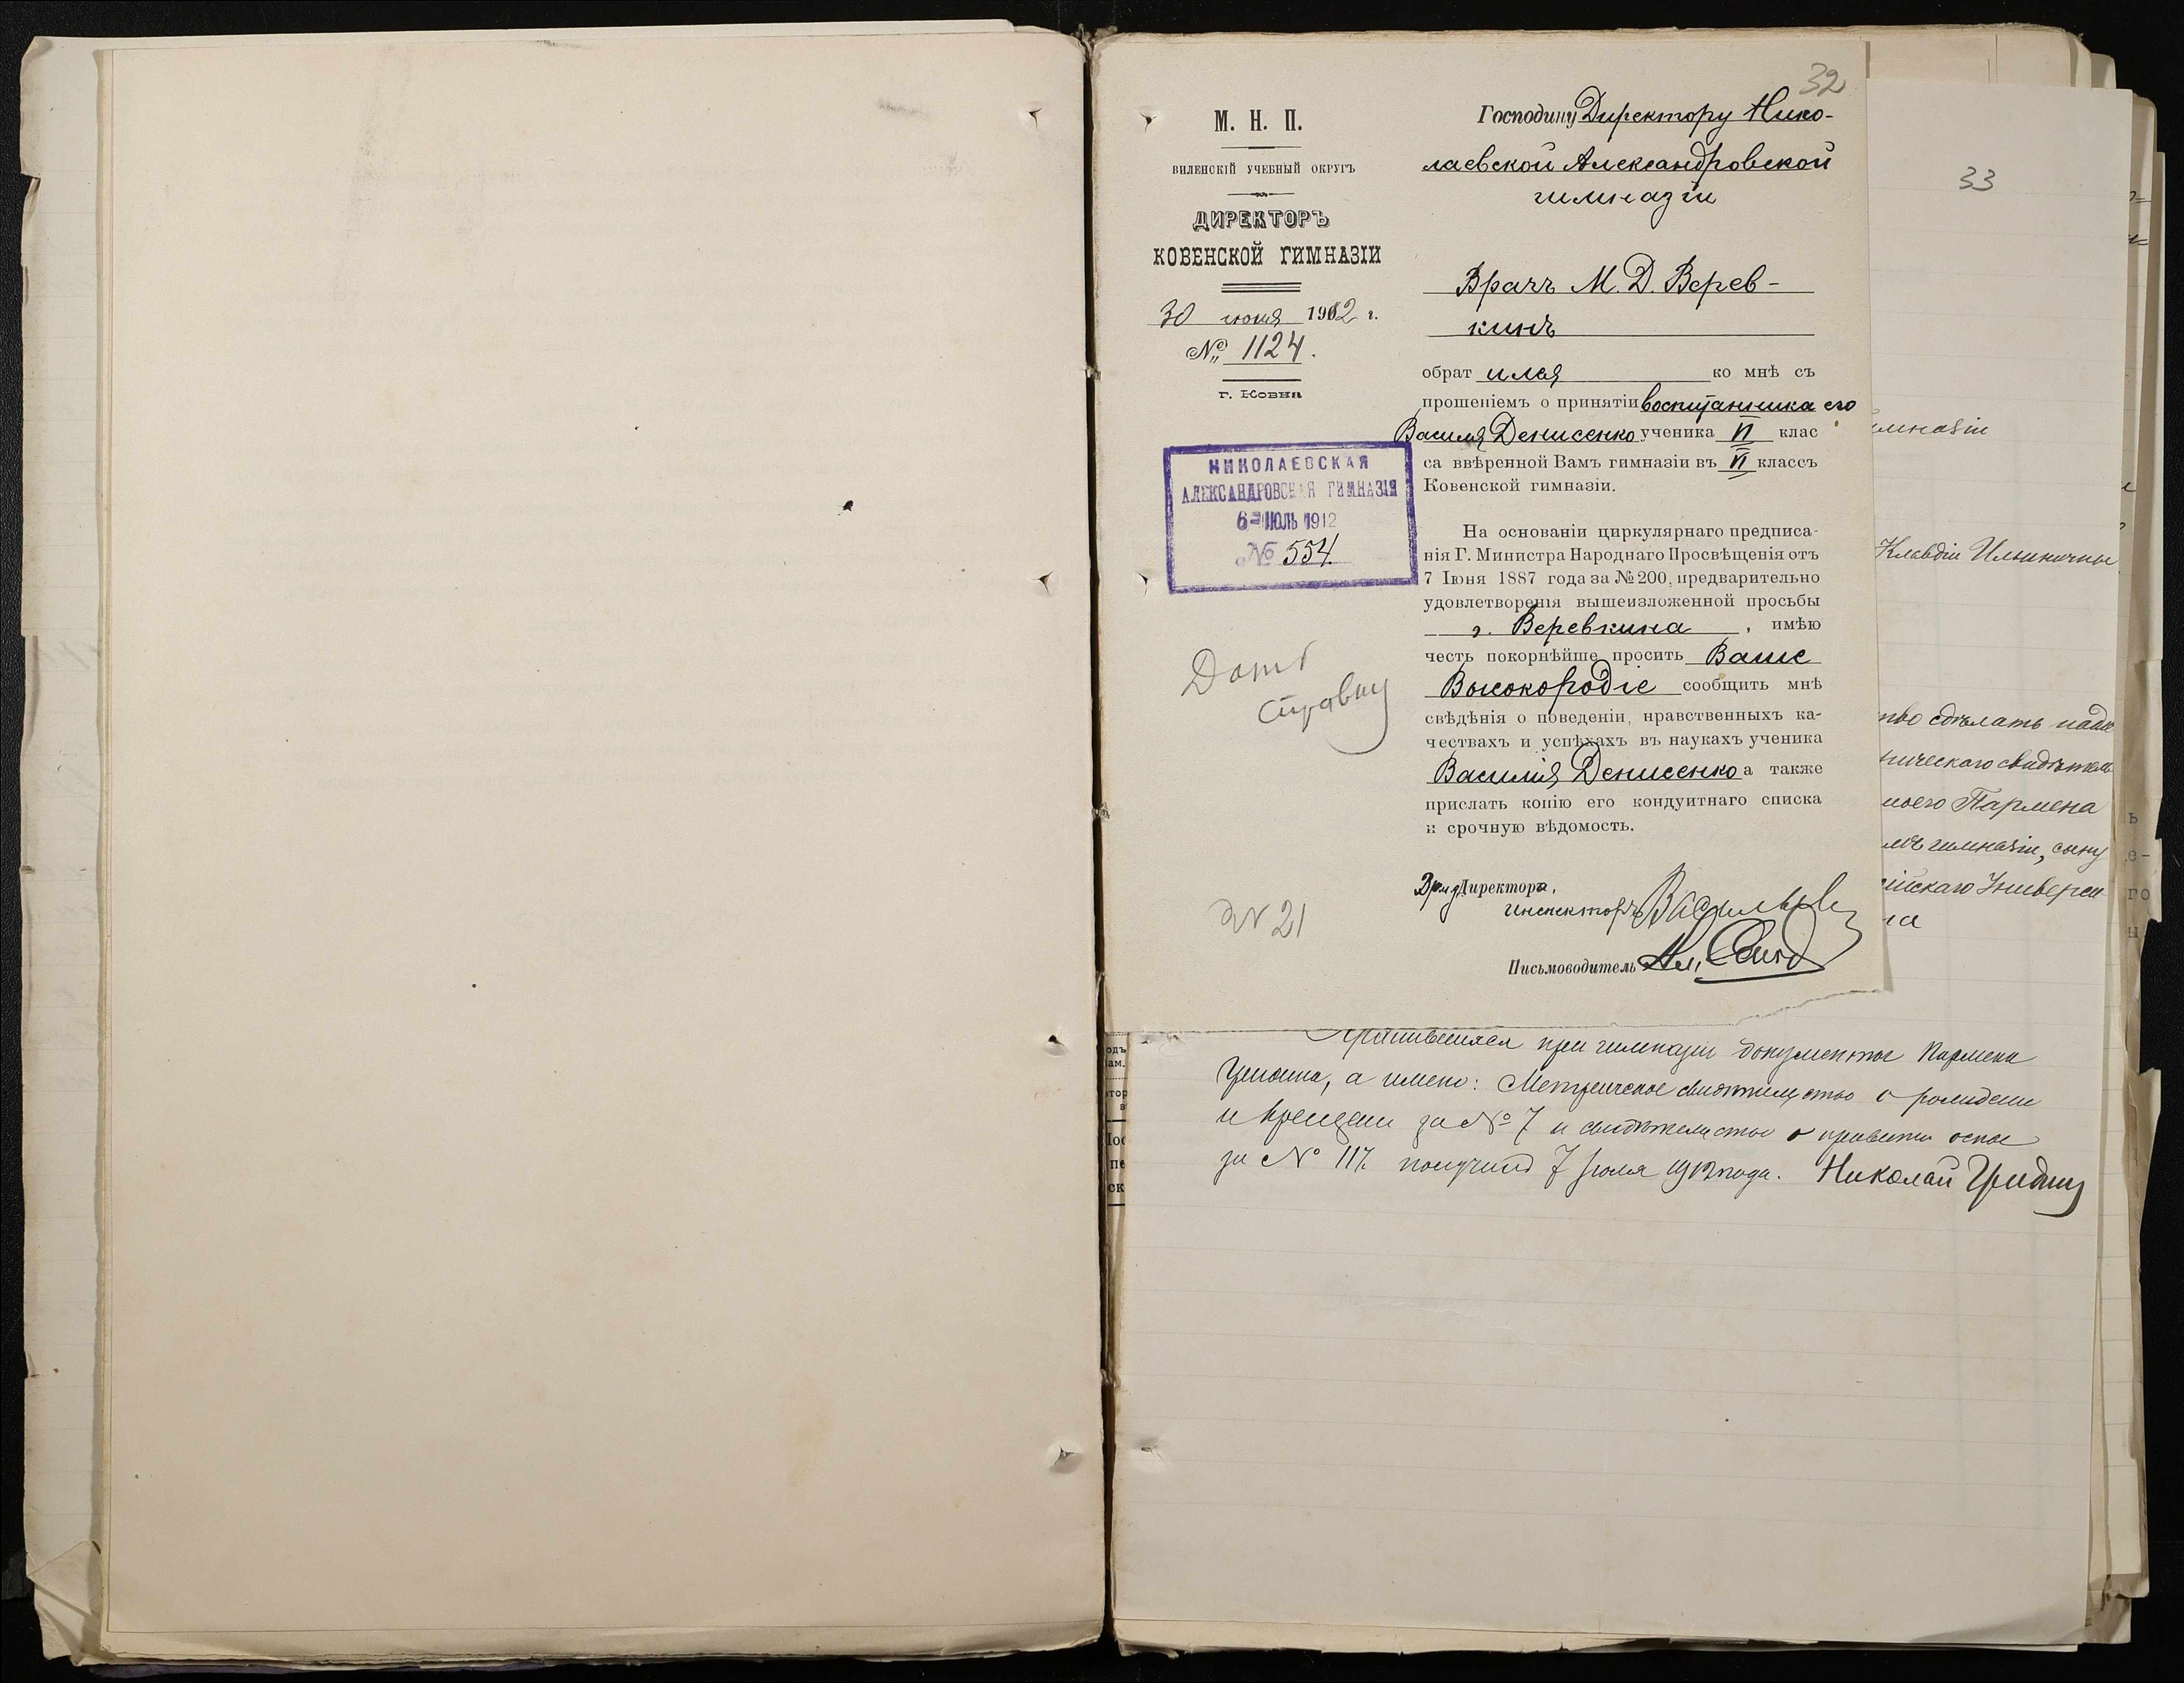 32
М. Н. П.
ВИЛЕНСКІЙ УЧЕБНЫЙ ОКРУГЪ
ДИРЕКТОРЪ
КОВЕНСКОЙ ГИМНАЗІИ
30 июня 1912 г.
№ 1124.
г. Ковна
НИКОЛАЕВСКАЯ
АЛЕКСАНДРОВСКАЯ ГИМНАЗІЯ
6 ІЮЛЬ 1912
№ 554
Дать
справку
№ 21
Господину Директору Нико-
лаевской Александровской
гимназіи
Врачъ М. Д. Верев-
кинъ
обратился ко мнѣ съ
прошеніемъ о принятіи воспитанника его
Василія Денисенко ученика VI клас
са ввѣренной Вамъ гимназіи въ VI классъ
Ковенской гимназіи.
На основаніи циркулярнаго предписа-
нія Г. Министра Народнаго Просвѣщенія отъ
7 Іюня 1887 года за № 200, предварительно
удовлетворенія вышеизложенной просьбы
г. Веревкина, имѣю
честь покорнѣйше просить Ваше
Высокородіе сообщить мнѣ
свѣдѣнія о поведеніи, нравственныхъ ка-
чествахъ и успѣхахъ въ наукахъ ученика
Василія Денисенко а также
прислать копію его кондуитнаго списка
и срочную вѣдомость.
Директора,
Инспекторъ Васильев
Письмоводитель
33
имназіи
Клавдіи
тво сдѣлать
ическаго
моего Пармена
гимназіи, сыну
при гимназіи документы Пармена
а имено: Метрическое свидѣтельство о рожденіи
и крещеніи за № 7 и свидѣтельство о привитіи оспы
за № 117. получилъ 7 Іюля 1912 года. Николай